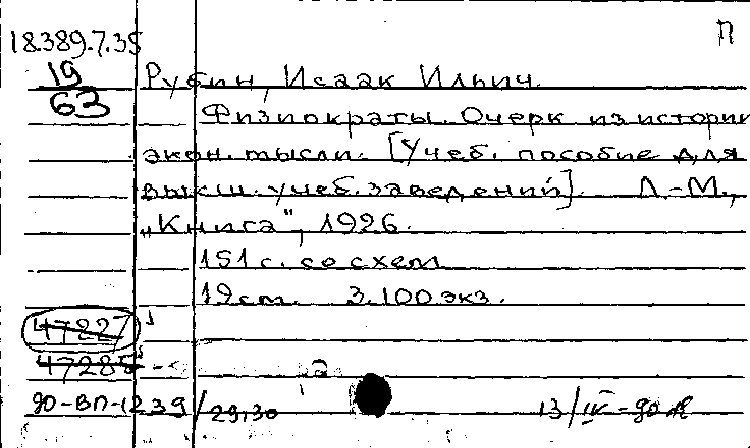 П
18.389.7.35
19
63
Рубин, Исаак Ильич.
Физиократы. Очерк из истории
экон. мысли. [Учеб. пособие для
высш. учеб. заведений]. Л.-М.,
„Книга", 1926.
151 с. со схем.
19 cm. 3.100 экз.
47227
47285
90-ВП-1239/29,30
13/IV-90